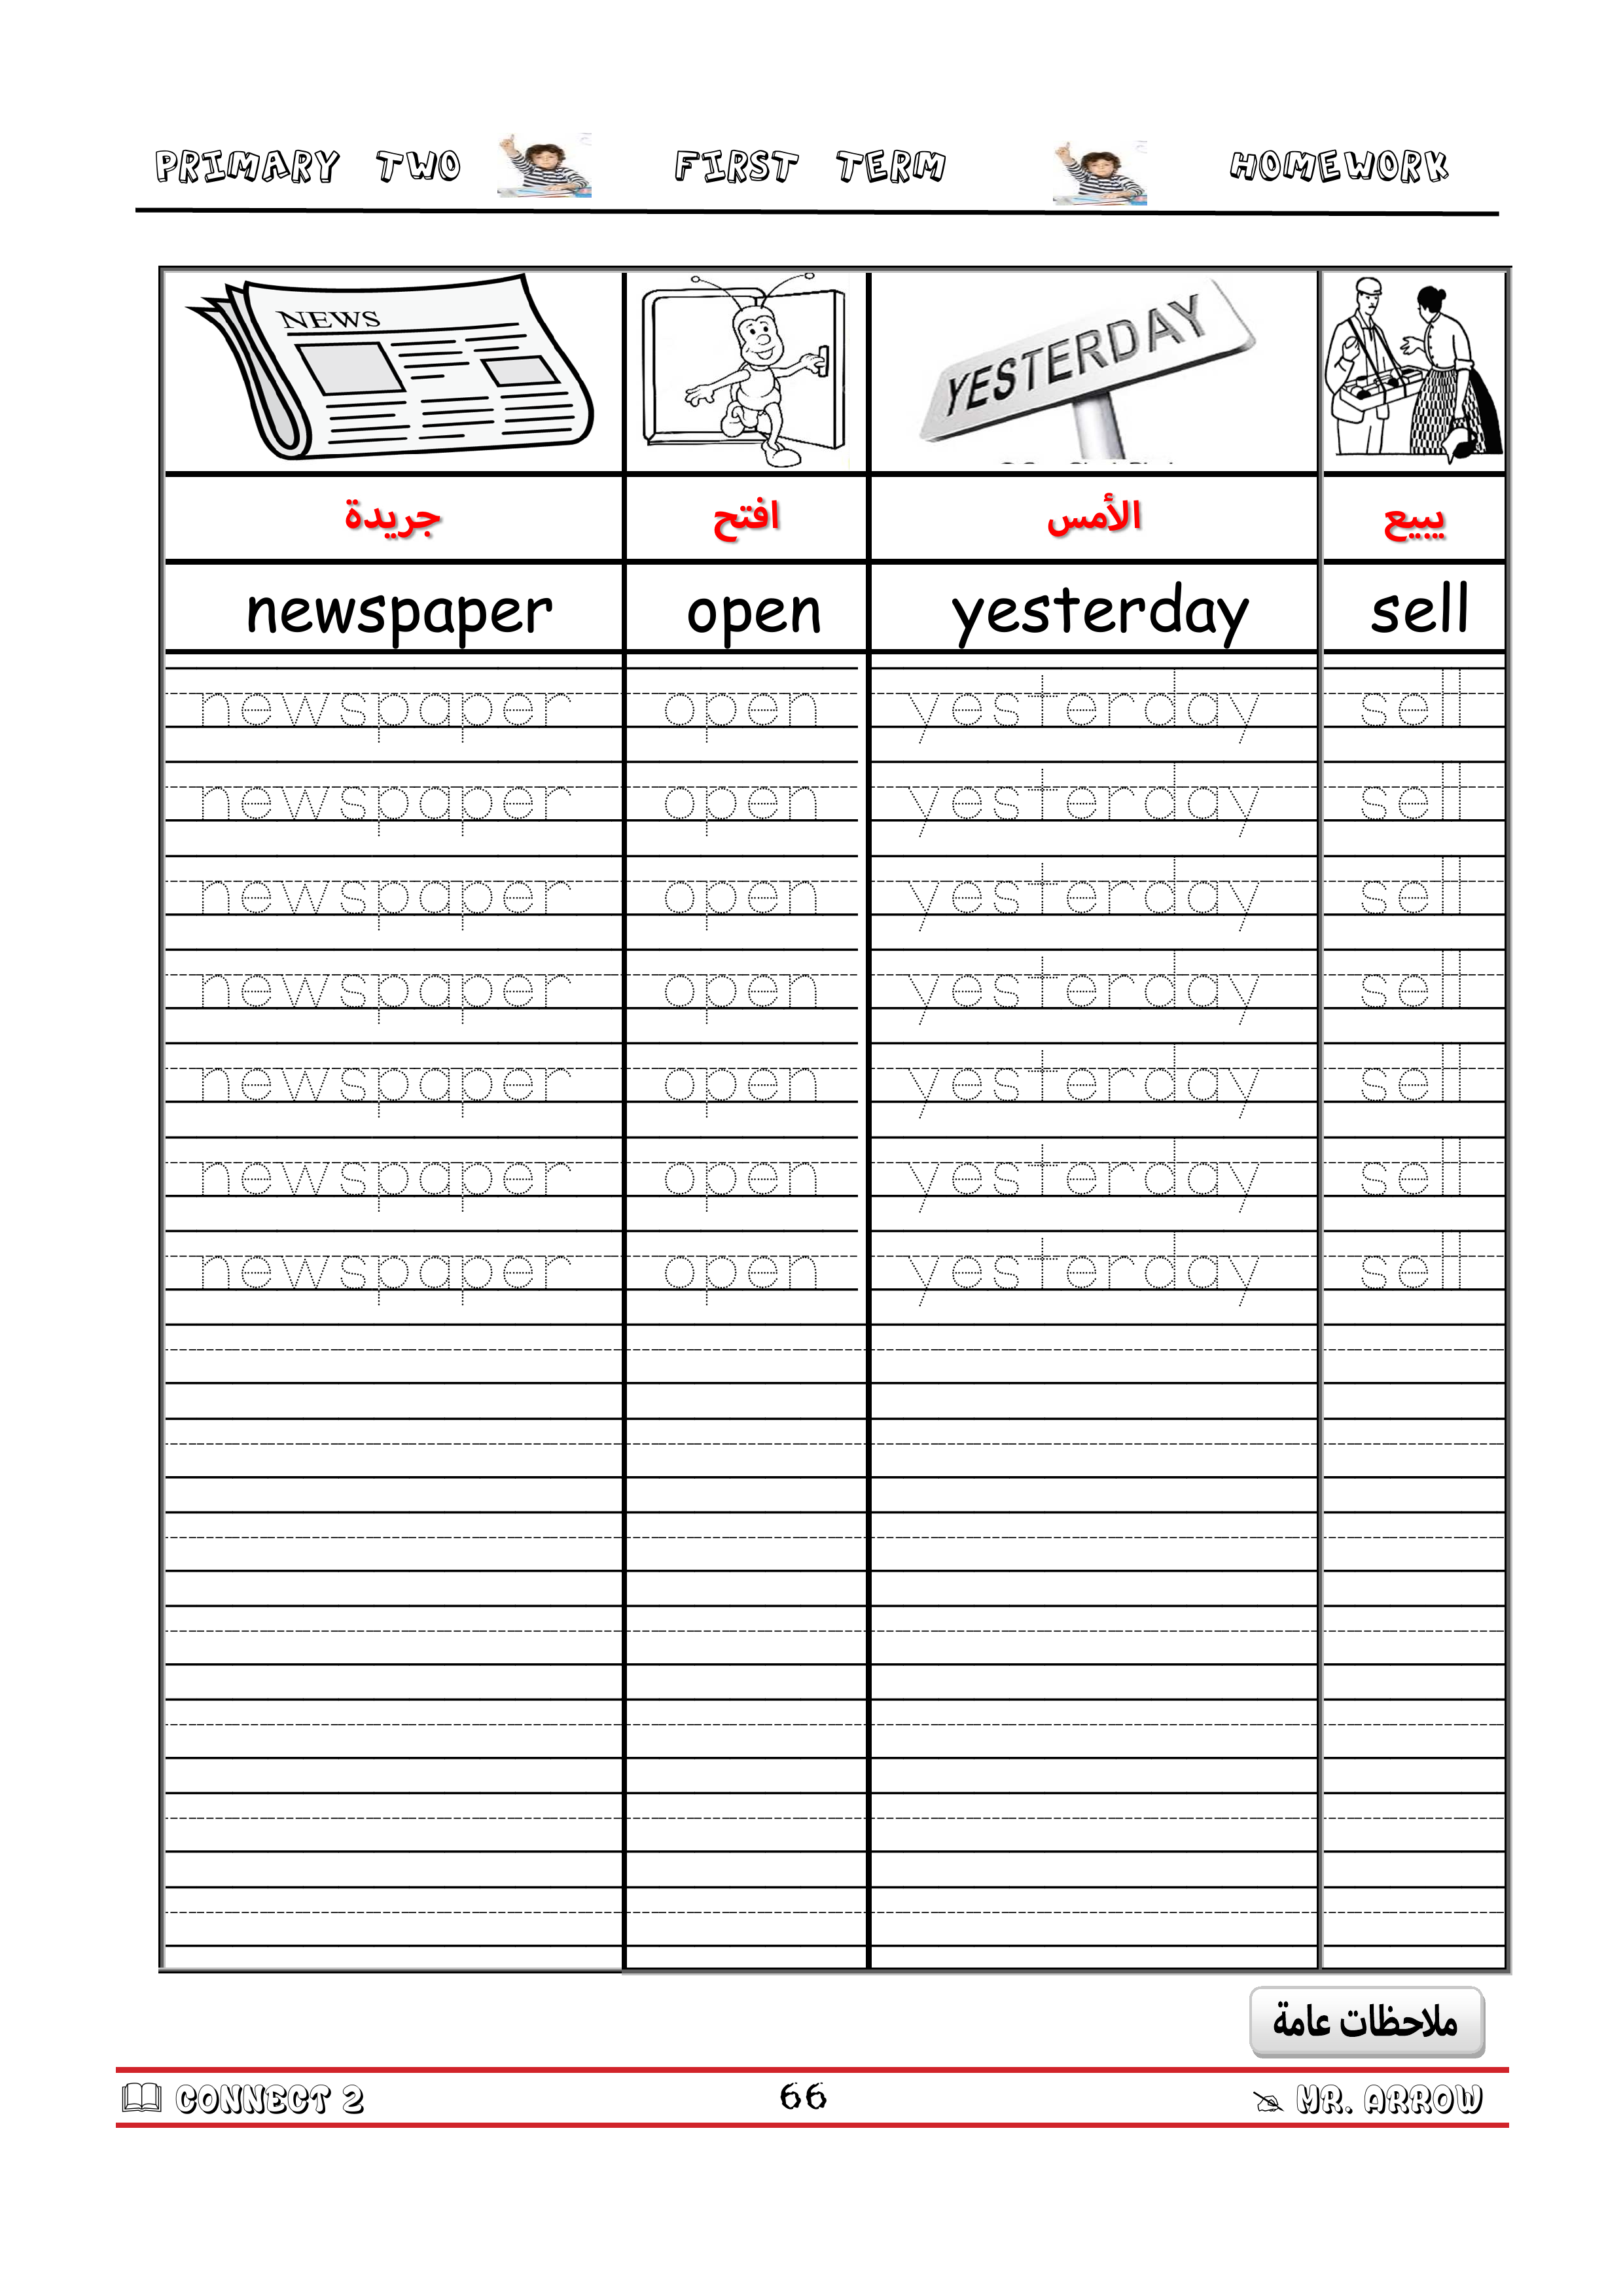 PRIMARY TWO FIRST TERM HOMEWORK
NEWS
YESTERDAY
جريدة افتح الأمس يبيع
newspaper open yesterday sell
newspaper open yesterday sell
newspaper open yesterday sell
newspaper open yesterday sell
newspaper open yesterday sell
newspaper open yesterday sell
newspaper open yesterday sell
newspaper open yesterday sell
ملاحظات عامة
CONNECT 2 66 MR. ARROW